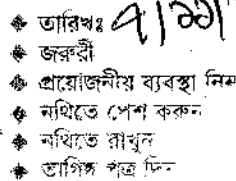 তারিখঃ ৭/১১/
জরুরী
প্রয়োজনীয় ব্যবস্থা নিন
নথিতে পেশ করুন
নথিতে রাখুন
তাগিদ পত্র দিন